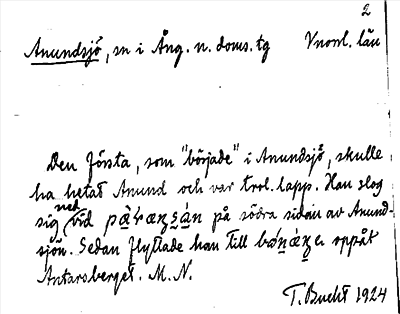 2
Anundsjö, sn i Ång. n. doms. tg Vnorrl. län
Den första, som "började" i Anundsjö, skulle
ha hetat Anund och var trol. lapp. Han slog
sig ned vid på södra sidan av Anund-
sjön. Sedan flyttade han till uppåt
Antarsberget. M. N.
T. Bucht 1924